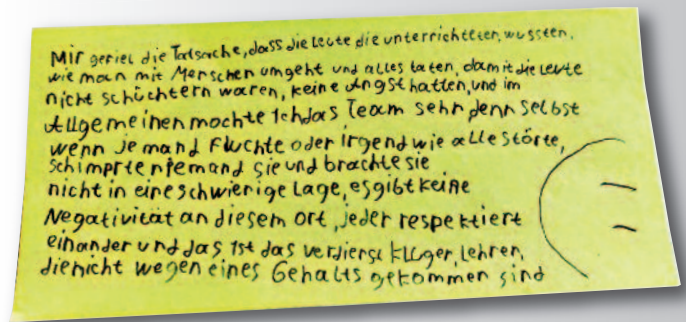 Mir gefiel die Tatsache, dass die Leute die unterrichteten, wussten,
wie man mit Menschen umgeht und alles taten, damit die Leute
nicht schüchtern waren, keine Angst hatten, und im
Allgemeinen mochte ich das Team sehr denn selbst
wenn jemand Fluchte oder irgendwie alle störte,
schimpfte niemand sie und brachte sie
nicht in eine schwierige Lage, es gibt keine
Negativität an diesem Ort, jeder respektiert
einander und das ist das verdienst kluger, lehren,
die nicht wegen eines Gehalts gekommen sind